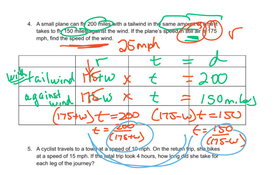 4. A small plane can fly 200 miles with a tailwind in the same amount of time it
takes to fly 150 miles against the wind. If the plane's speed in still air is 175
mph, find the speed of the wind.
25mph
r t = d
with tailwind 175+w x t = 200
against wind 175-w x t = 150 miles
(175+w)t=200 (175-w)t=150
t = 200/(175+w) t = 150/(175-w)
5. A cyclist travels to a town at a speed of 10 mph. On the return trip, she bikes
at a speed of 15 mph. If the total trip took 4 hours, how long did she take for
each leg of the journey?